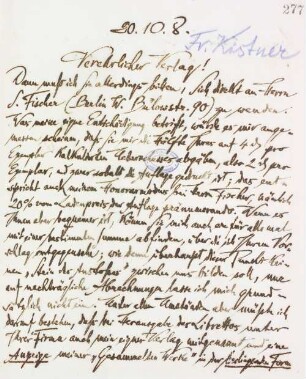 277
20.10.8.
Fr. Kistner
Verehrlicher Verlag!
Dann muß ich Sie allerdings bitten, Sich direkt an Herrn
S. Fischer (Berlin W. Bülowstr. 90) zu wenden.
Was meine eigene Entschädigung betrifft, würde es mir ange-
messen scheinen, daß Sie mir die Hälfte Ihrer auf 4 ₰ pro
Exemplar abgeben, also 2 ₰ pro
Exemplar, und zwar sobald die Auflage gedruckt ist; das ent-
spricht auch meinem Honorarmodus bei Herrn Fischer, nämlich
20% vom Ladenpreis der Auflage pränumerando. Wenn es
Ihnen aber bequemer ist, können Sie mich auch ein für alle mal
mit einer bestimmten Summe abfinden, über die ich Ihrem Vor-
schlag entgegensehe; wie denn überhaupt dieser Punkt kei-
nen Stein des Anstoßes zwischen uns bilden soll, nur
auf nachträgliche Abrechnungen lasse ich mich grund-
sätzlich nicht ein. Unter allen Umständen aber müßte ich
darauf bestehen, daß bei Herausgabe des Librettos neben
Ihrer Firma auch mein eigner Verlag mitgenannt und eine
Anzeige meiner „Gesammelten Werke" in der beiliegenden Form